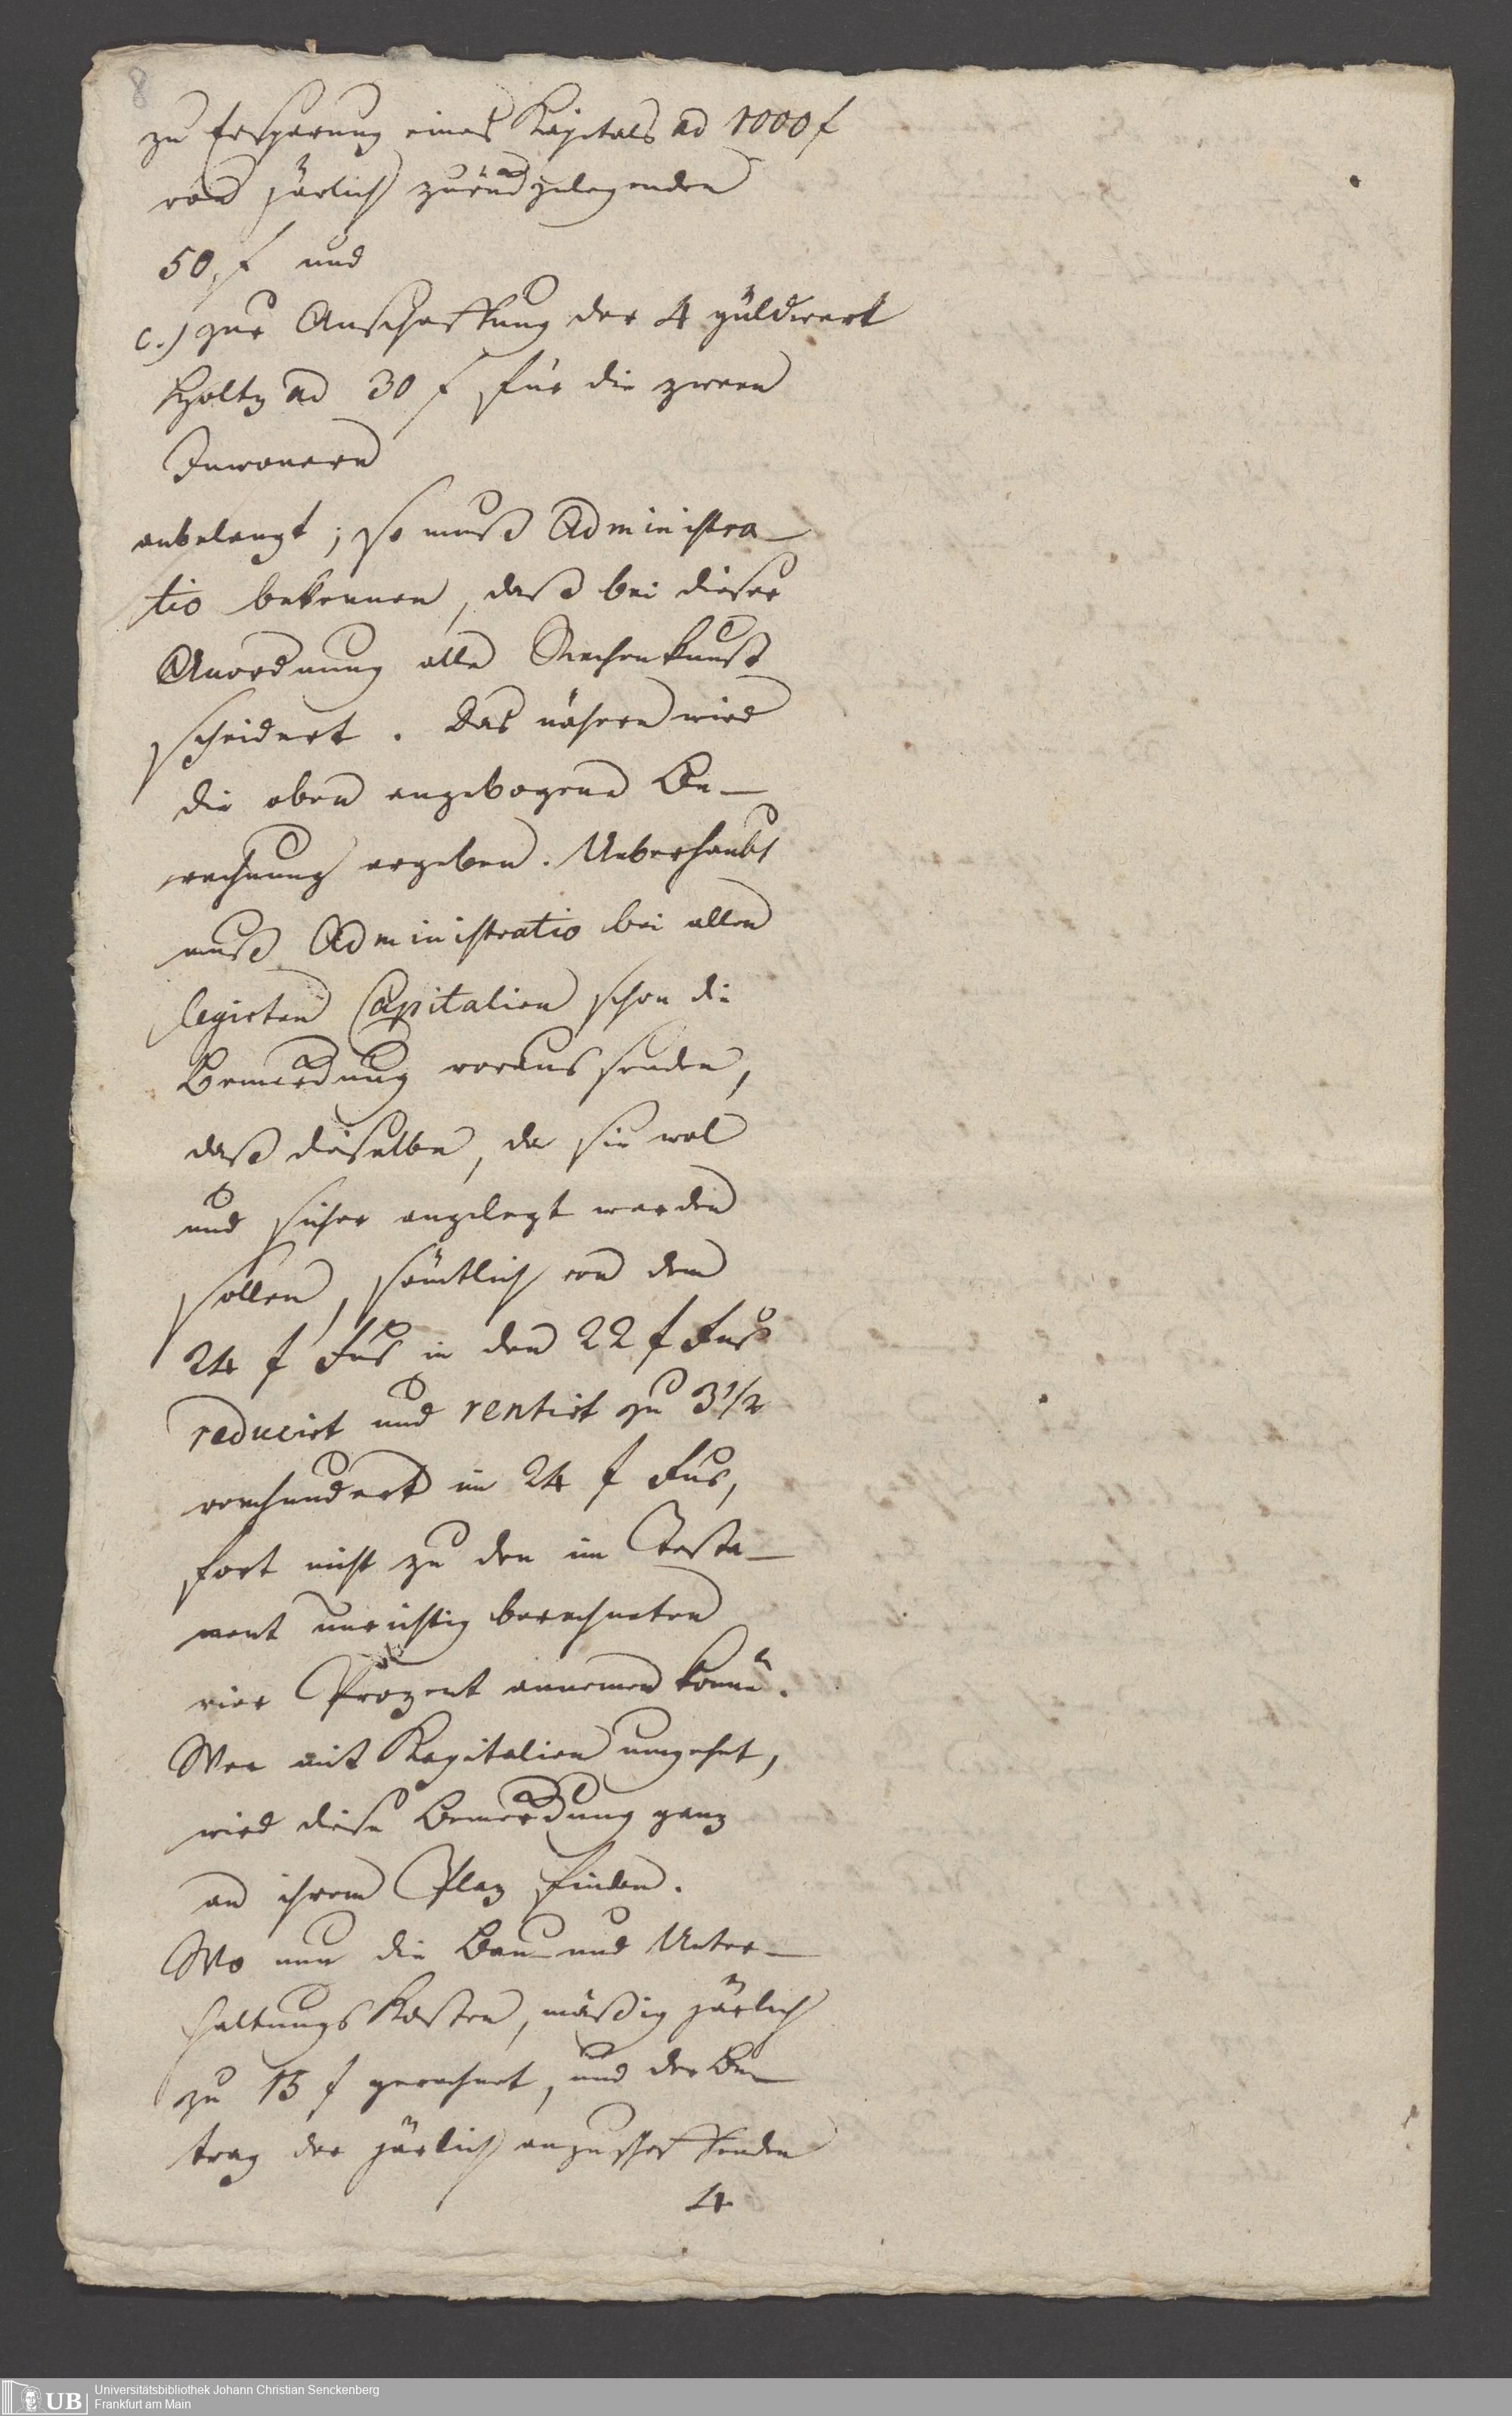 8
zu Ersparung eines Kapitals ad 1000 f
von järlich zurückzulegenden
50 f und
c.) zur Anschaffung der 4 güldwert
Holtz ad 30 f für die zween
Inwonern
anbelangt; so muß Administra-
tio bekennen, daß bei dieser
Anordnung alle Rechenkunst
scheidert. Das nähere wird
die oben angebogene Be-
rechnung ergeben. Ueberhaubt
muß Administratio bei allen
legirten Capitalien schon die
Bemerckung voraus senden,
daß dieselbe, da sie wol
und sicher angelegt werden
sollen, sämtlich von dem
24 f Fus in den 22 f Fus
reducirt und rentirt zu 3 1/2
vomhundert im 24 f Fus,
fort nicht zu den im Testa-
ment unrichtig berechneten
vier Prozent annemen könne.
Wer mit Kapitalien umgehet,
wird diese Bemerckung ganz
an ihrem Plaz finden.
Wo nun die Bau und Unter-
haltungs Kosten, mäßig järlich
zu 15 f gerechnet, und der Be-
trag der järlich anzuschaffenden
4
UB
Universitätsbibliothek Johann Christian Senckenberg
Frankfurt am Main